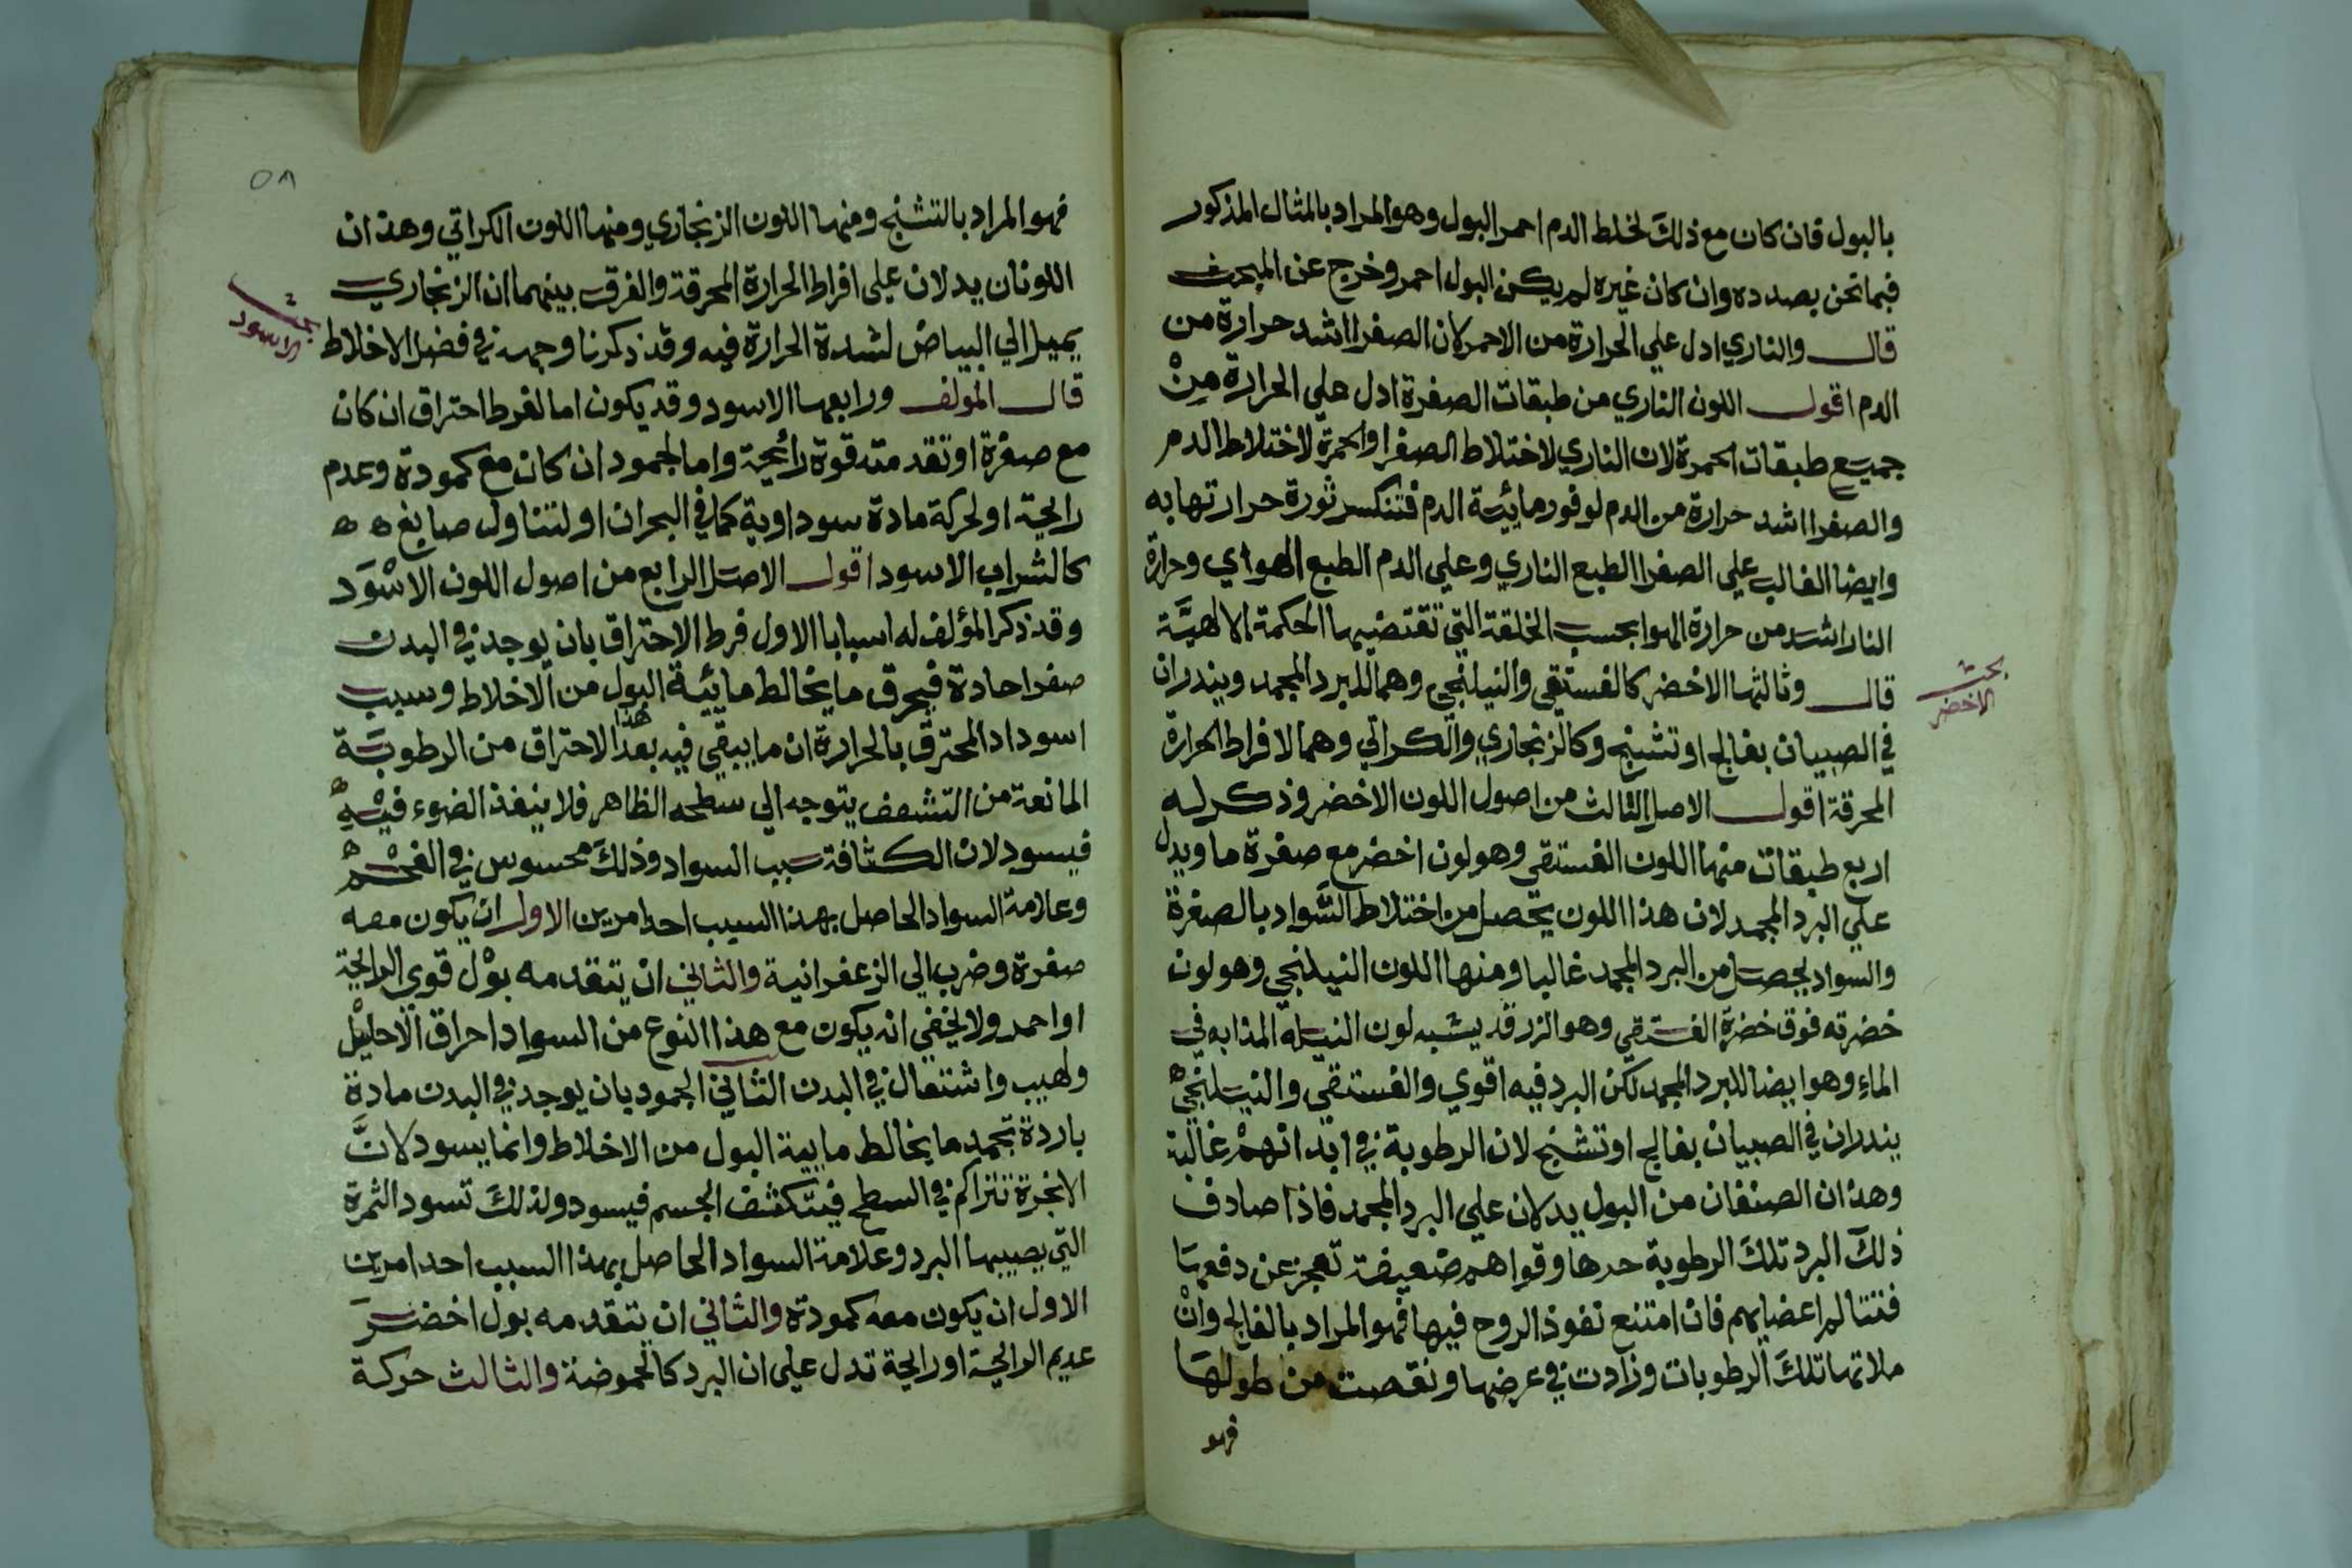 بالبول فان كان مع ذلك لخلط الدم احمر البول وهو المراد بالمثال المذكور
فيما نحن بصدده وان كان غيره لم يكن البول احمر وخرج عن المبحث
قال والناري ادل علي الحرارة من الاحمر لان الصفرا اشد حرارة من
الدم اقول اللون الناري من طبقات الصفرة ادل علي الحرارة مِنْ
جميع طبقات الحمرة لان الناري لاختلاط الصفرا والحمرة لاختلاط الدم
والصفرا اشد حرارة من الدم لوفور مائية الدم فتنكسر ثورة حرارتها به
وايضا الغالب علي الصفرا الطبع الناري وعلي الدم الطبع الهواي وحرارة
النار اشد من حرارة الهوا بحسب الخلقة التي تقتضيها الحكمة الالهيَّة
بحث
الاخضر
قال وثالثها الاخضر كالفستقي والنيلنجي وهما للبرد المجمد وينذران
في الصبيان بفالج او تشنج وكالزنجاري والكراثي وهما لافراط الحرارة
المحرقة اقول الاصل الثالث من اصول اللون الاخضر وذكر له
اربع طبقات منها اللون الفستقي وهو لون اخضر مع صفرة ما ويدل
علي البرد المجمد لان هذا اللون يحصل من اختلاط السَّواد بالصفرة
والسواد يحصل من البرد المجمد غالبا ومنها اللون النيلنجي وهو لون
خضرته فوق خضرة الفستقي وهو الزرقه يشبه لون النيله المذابه في
الماءِ وهو ايضا للبرد المجمد لكن البرد فيه اقوي والفستقي والنيلنجي ه
ينذران في الصبيان بفالج او تشنج لان الرطوبة في ابدانهمْ غالبة
وهذان الصنفان من البول يدلان علي البرد المجمد فاذا صادف
ذلكَ البرد تلكَ الرطوبة حدها وقواهم ضعيفة تعجز عن دفعها
فتتالم اعضايهم فان امتنع نفوذ الروح فيها فهو المراد بالفالج وانْ
ملاتها تلكَ الرطوبات وزادت في عرضها ونقصت من طولها
فهو
٥٨
فهو المراد بالتشنج ومنها اللون الزنجاري ومنها اللون الكراثي وهذان
اللونان يدلان علي افراط الحرارة المحرقة والفرق بينهما ان الزنجاري
بحث
الاسود
يميل الي البياض لشدة الحرارة فيه وقد ذكرنا وجهه في فضل الاخلاط
قال المولف ورابعها الاسود وقد يكون اما لفرط احتراق ان كان
مع صفرة او تقدمته قوة رائحة واما لجمود ان كان مع كمودة وعدم
رايحة او لحركة مادة سوداوية كما في البحران او لتناول صابغ ه ه
كالشراب الاسود اقول الاصل الرابع من اصول اللون الاسْوَد
وقد ذكر المؤلف له اسبابا الاول فرط الاحتراق بان يوجد في البدن
صفرا حادة فيحرق ما يخالط مائية البول من الاخلاط وسبب
اسوداد المحترق بالحرارة ان ما يبقي فيه بعد هذا الاحتراق من الرطوبَة
المانعة من التشفف يتوجه الي سطحه الظاهر فلا ينفذ الضوء فيْهِ ه
فيسود لان الكثافة سبب السواد وذلكَ محسوس في الفحْم ه
وعلامة السواد الحاصل بهذا السبب احد امرين الاول ان يكون معه
صفرة وضرب الي الزعفرانية والثاني ان يتقدمه بوْل قوي الرايحة
او احمر ولا يخفي انه يكون مع هذا النوع من السواد احراق الاحليْل
ولهيب واشتعال في البدن الثاني الجمود بان يوجد في البدن مادة
باردة تجمد ما يخالط مايية البول من الاخلاط وانما يسود لانَّ
الابخرة تتراكم في السطح فيتكثف الجسم فيسود ولذلكَ تسود الثمرة
التي يصيبها البرد وعلامة السواد الحاصل بهذا السبب احد امرين
الاول ان يكون معه كمودة والثاني ان يتقدمه بول اخضر
عديم الرايحة او رايحة تدل علي ان البرد كالحموضة والثالث حركة